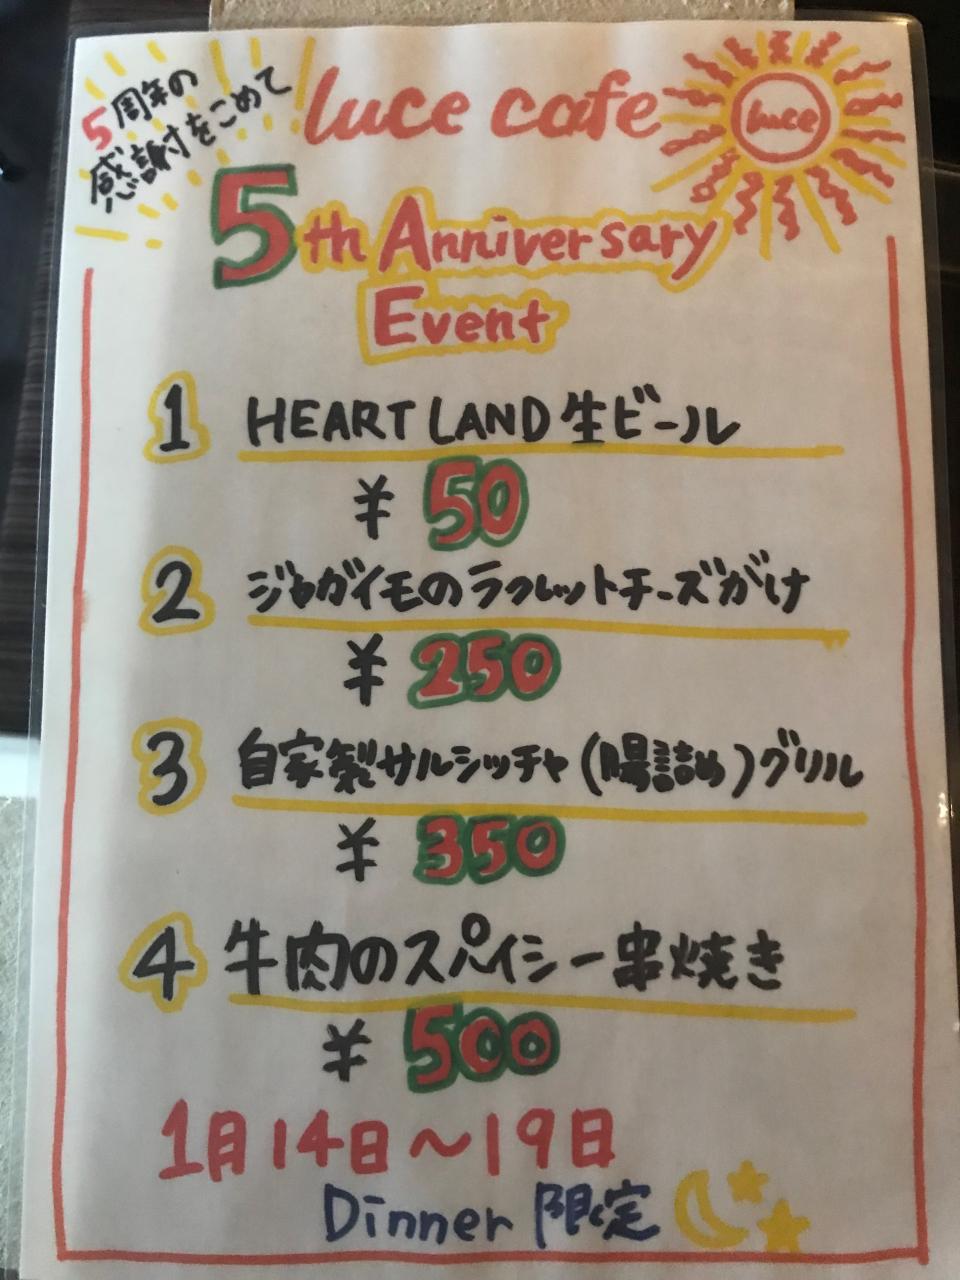 5周年の
感謝をこめて
luce cafe
luce
5th Anniversary
Event
1 HEART LAND 生ビール
¥ 50
2 ジャガイモのラクレットチーズがけ
¥ 250
3 自家製サルシッチャ(腸詰め)グリル
¥ 350
4 牛肉のスパイシー串焼き
¥ 500
1月14日～19日
Dinner 限定